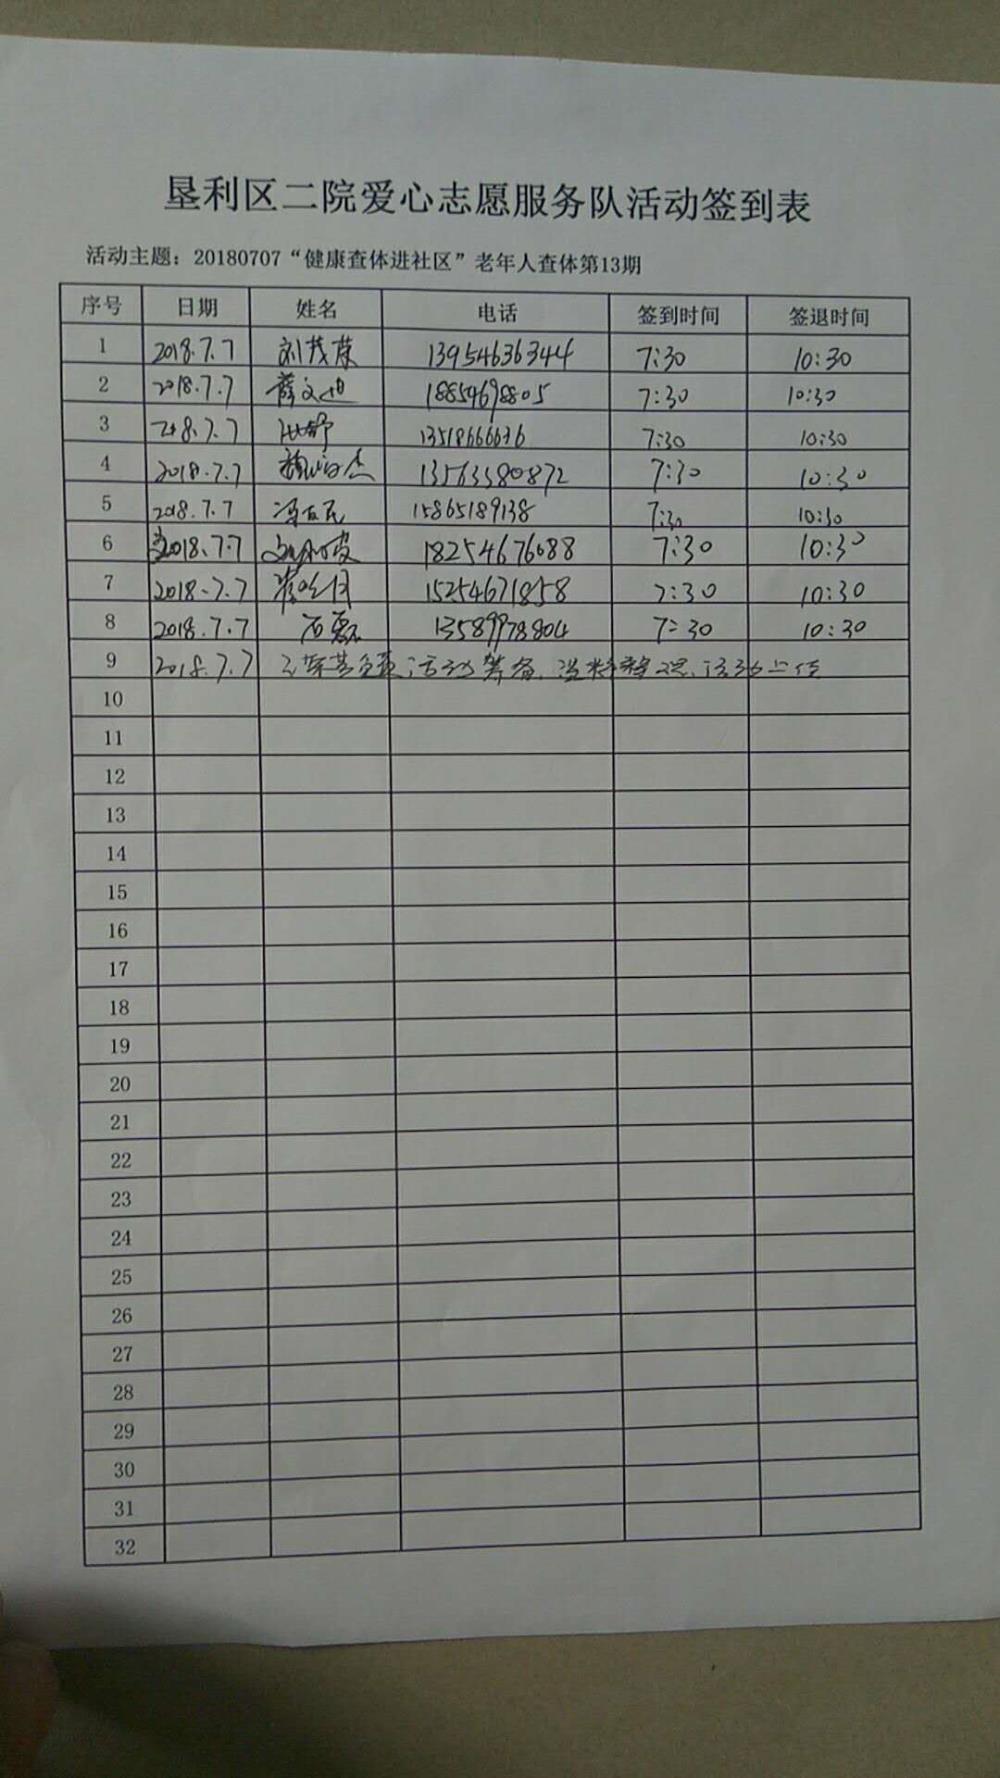 垦利区二院爱心志愿服务队活动签到表
活动主题：20180707“健康查体进社区”老年人查体第13期
序号 日期 姓名 电话 签到时间 签退时间
1 2018.7.7 刘茂荣 13954636344 7:30 10:30
2 2018.7.7 薛文迪 18854698805 7:30 10:30
3 2018.7.7 13518666636 7:30 10:30
4 2018.7.7 13563380872 7:30 10:30
5 2018.7.7 15865189138 7:30 10:30
6 2018.7.7 18254676088 7:30 10:30
7 2018.7.7 15254671858 7:30 10:30
8 2018.7.7 石磊 13589978804 7:30 10:30
9 2018.7.7 负责活动筹备、资料整理、活动上传
10
11
12
13
14
15
16
17
18
19
20
21
22
23
24
25
26
27
28
29
30
31
32